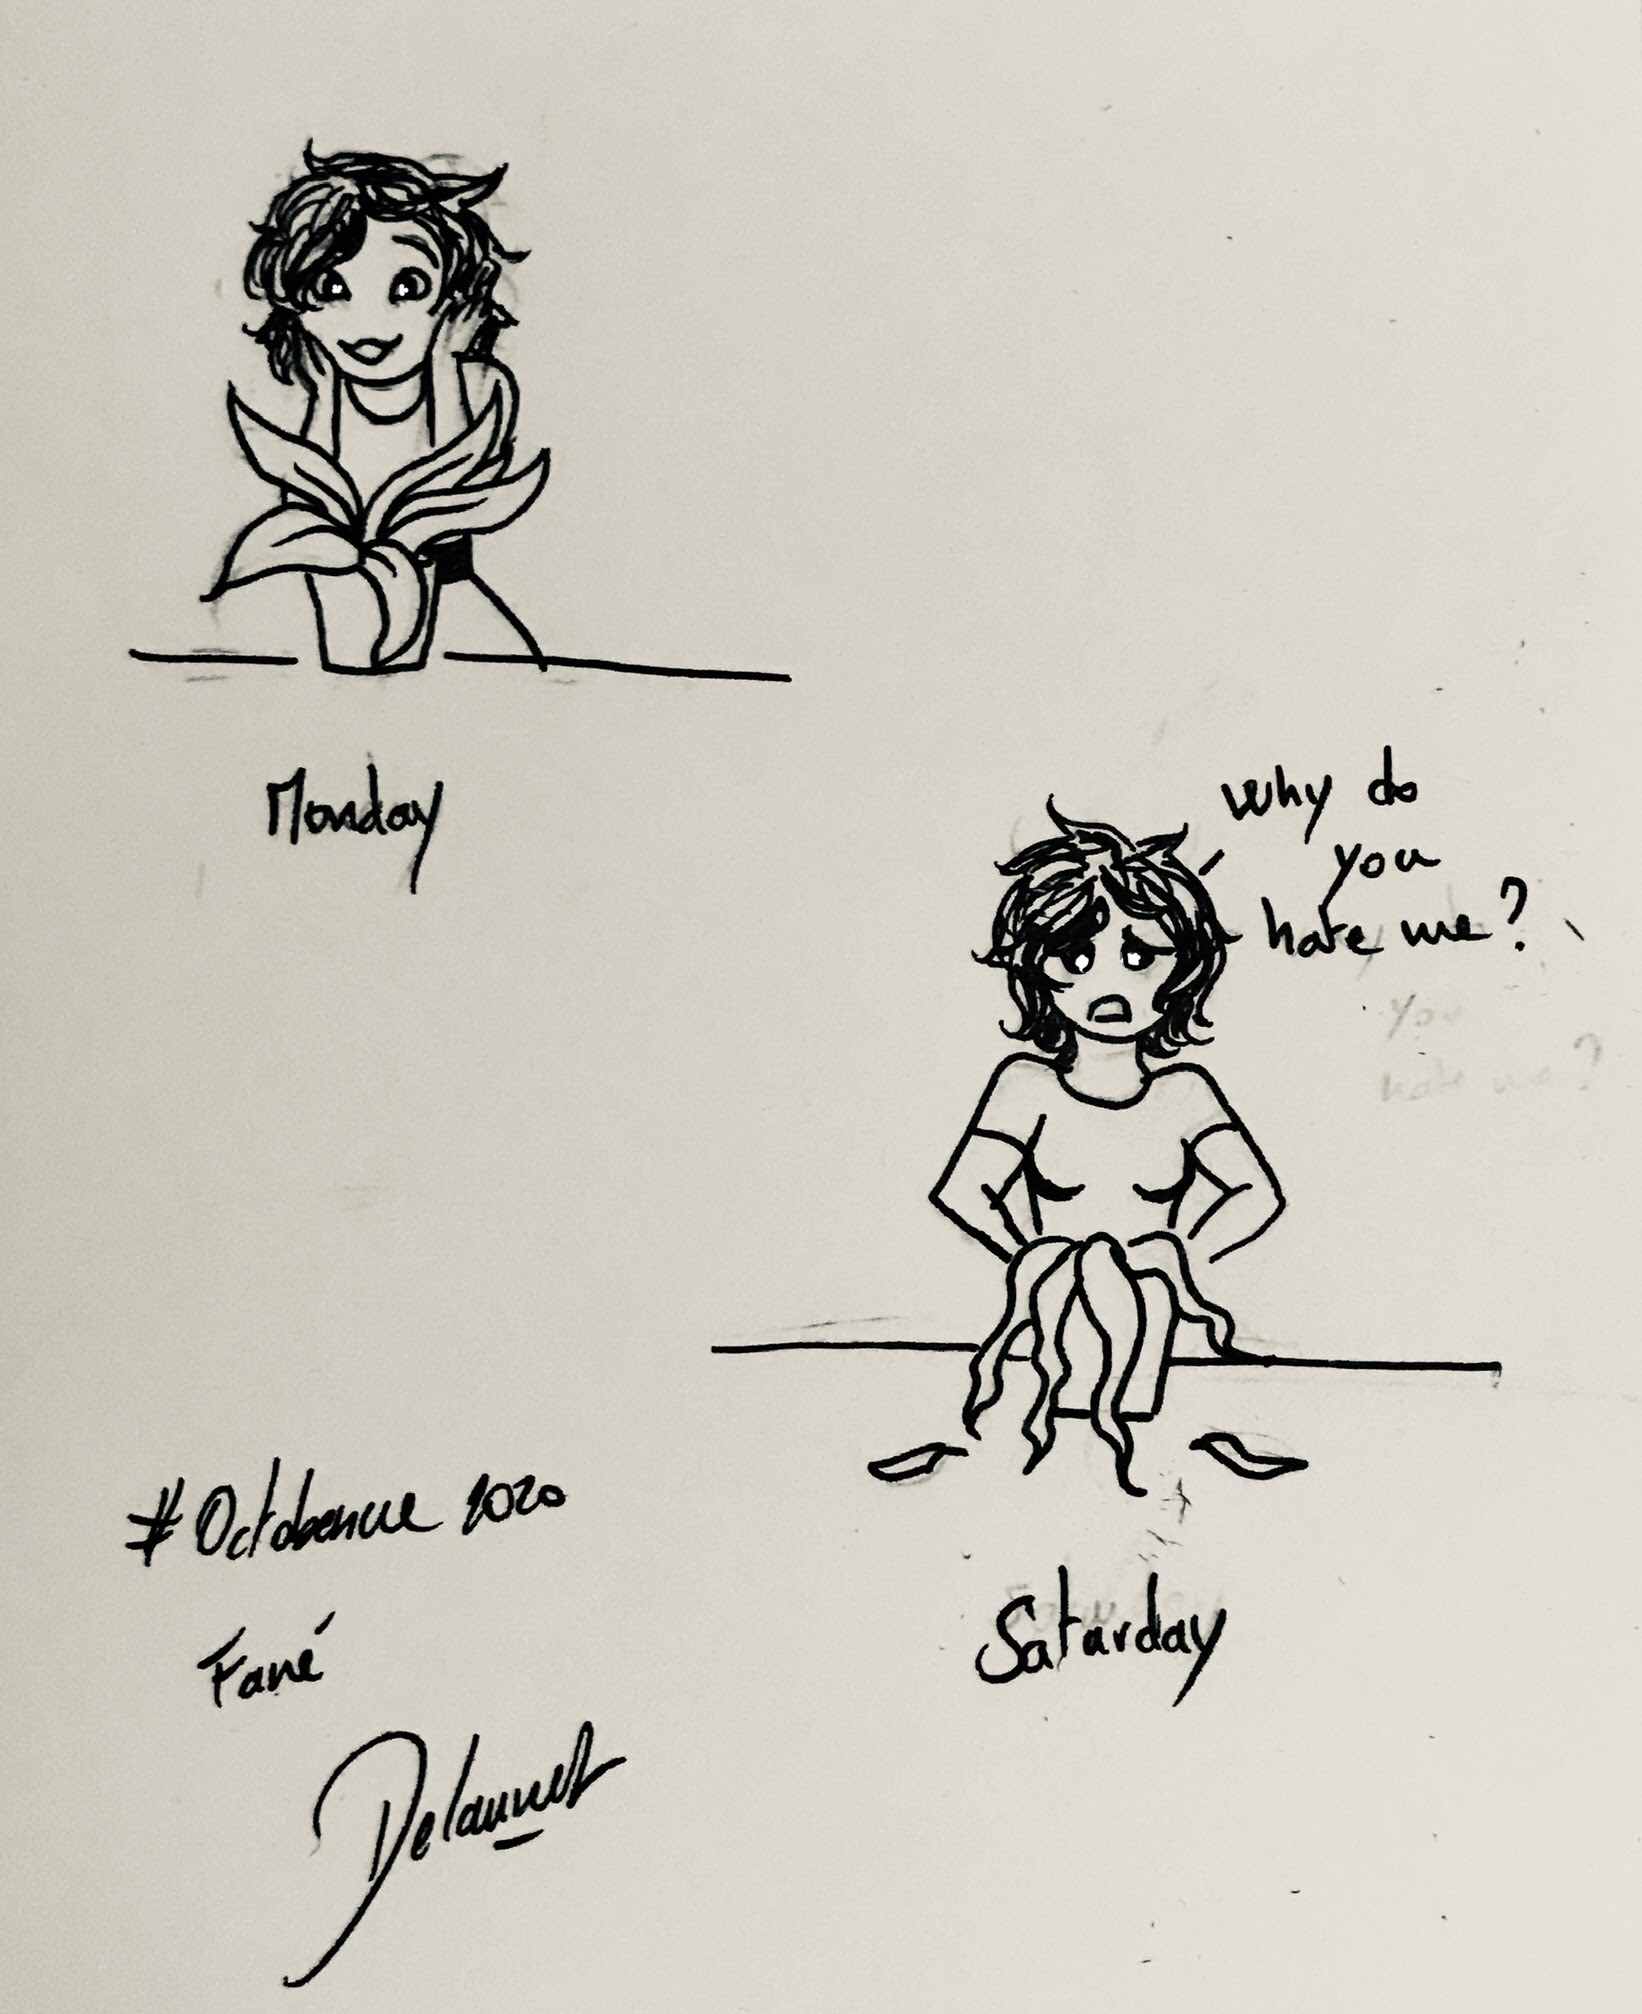 Monday
Why do
you
hate me?
Saturday
#Octobenue 2020
Fané